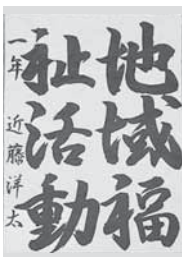 地域福
祉活動
一年 近藤洋太